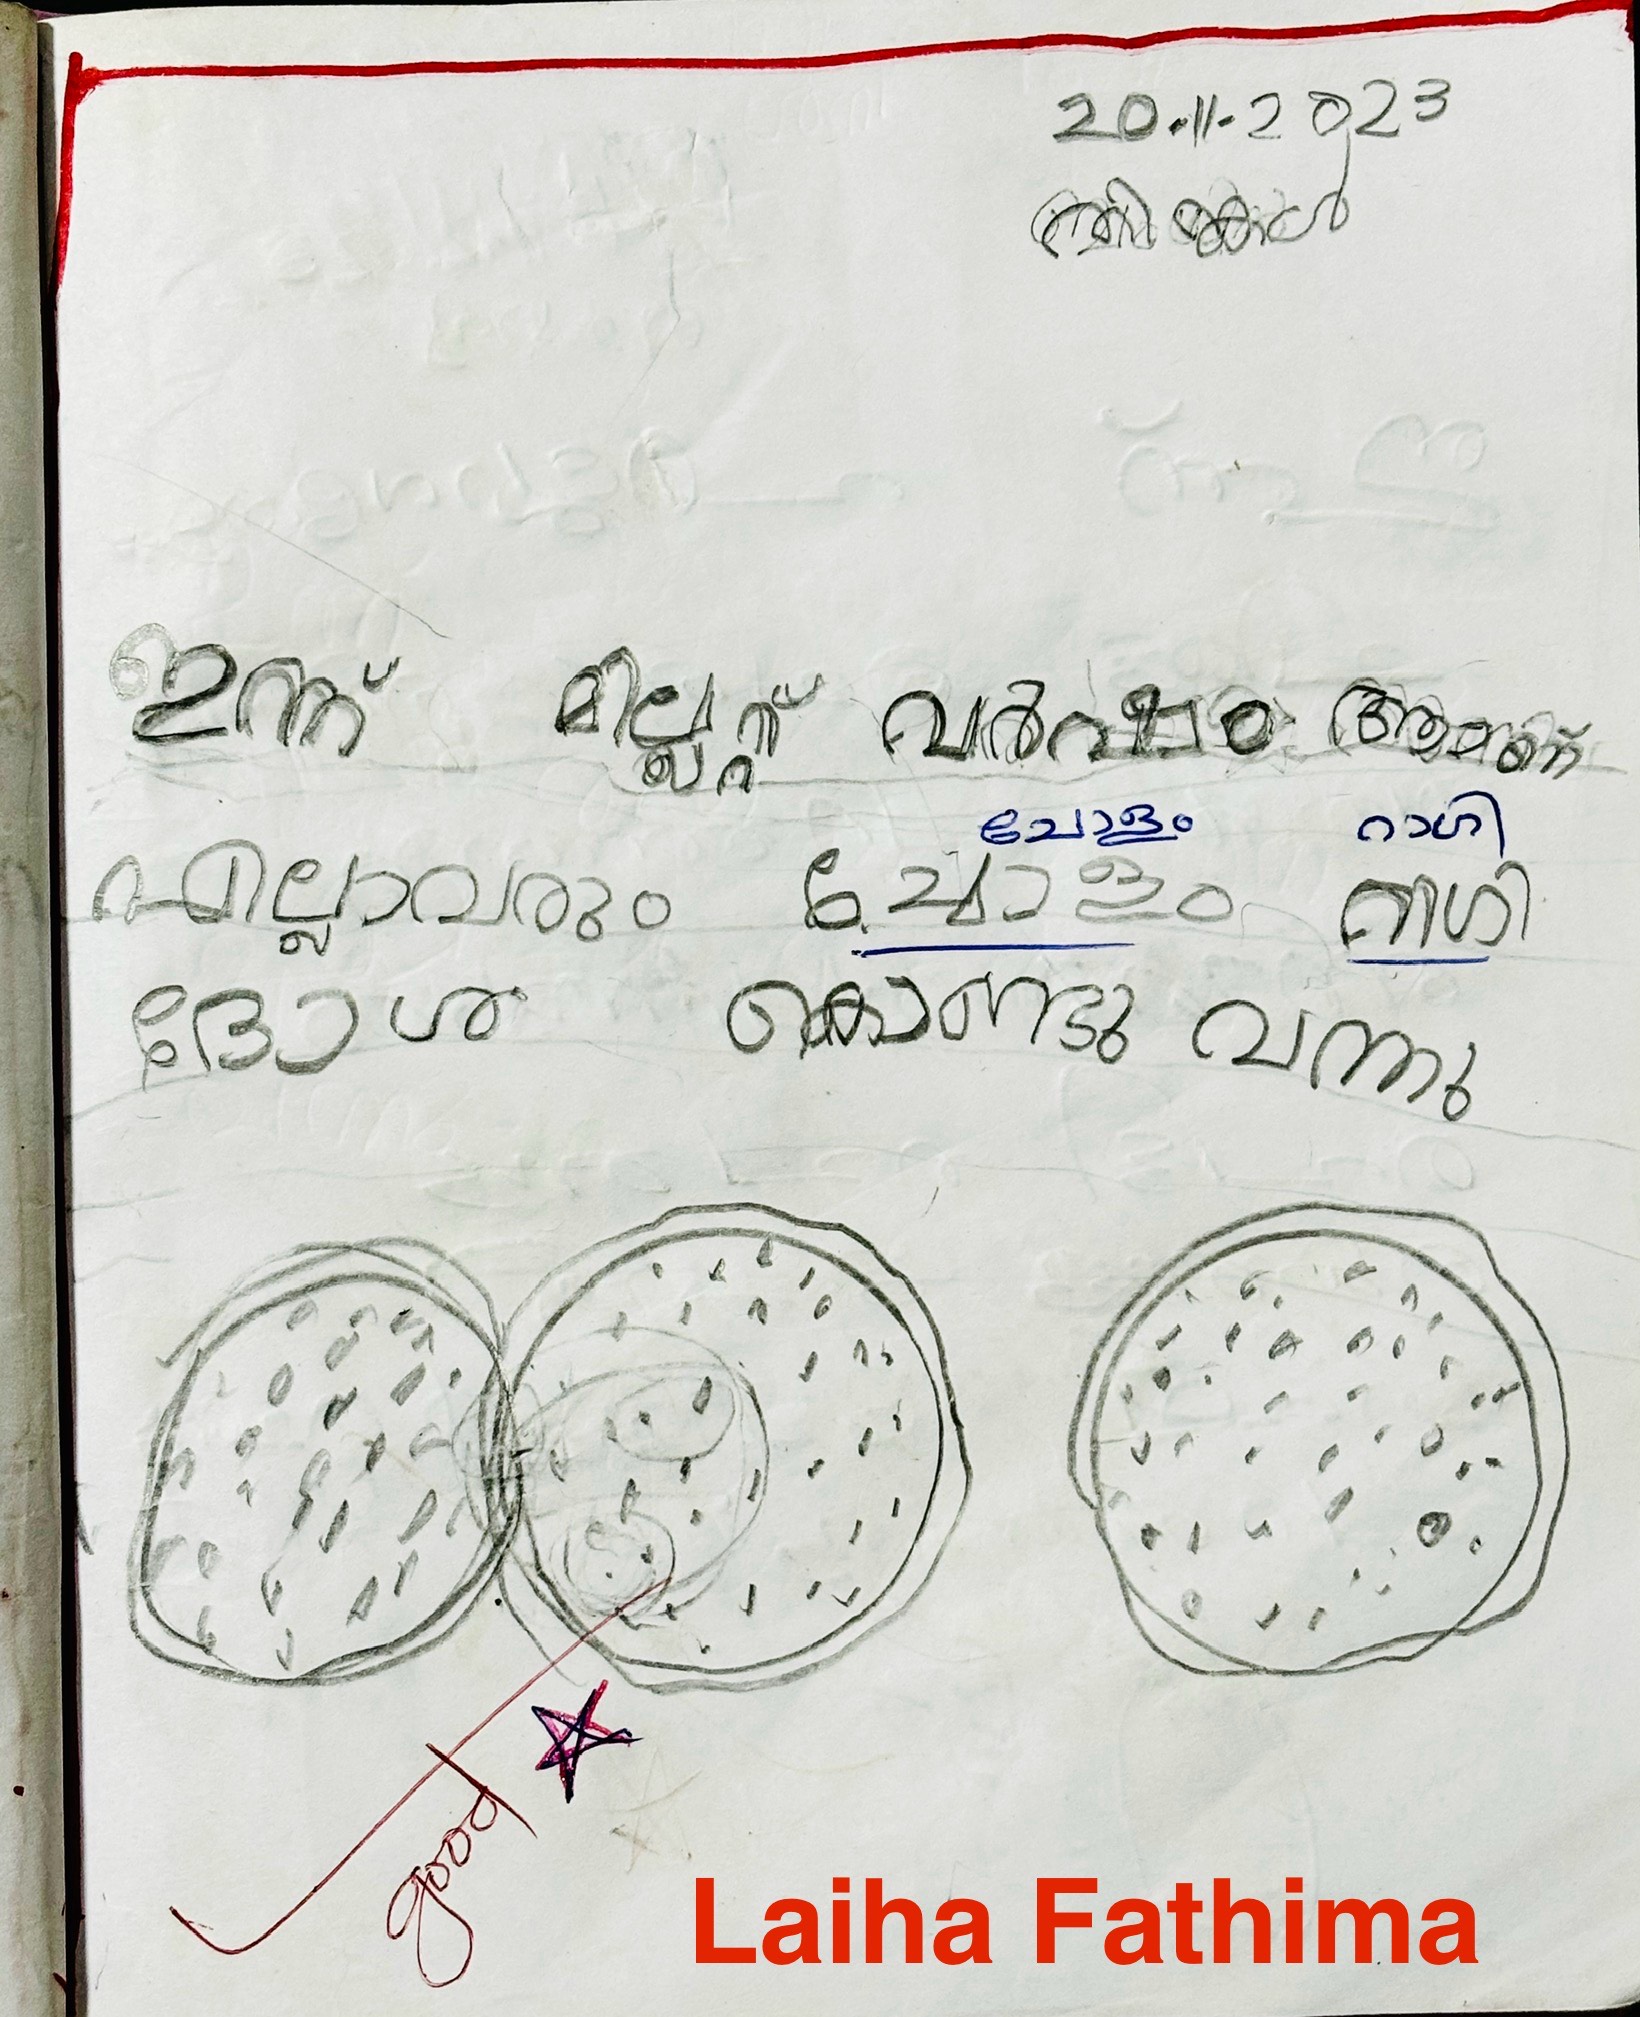 20.11.2023
തിങ്കൾ
ഇന്ന് മില്ലറ്റ് വർഷം ആണ്
ചോളം റാഗി
എല്ലാവരും ചോളം റാഗി
ദോശ കൊണ്ടു വന്നു
good
Laiha Fathima